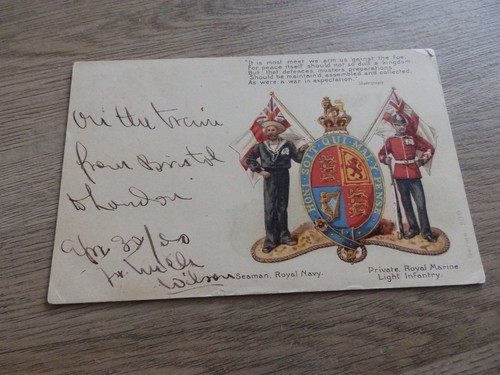 "It is most meet we arm us 'gainst the foe,
For peace itself should not so dull a kingdom
But that defences, musters, preparations,
Should be maintain'd, assembled and collected,
As were a war in expectation."
Shakespeare
On the train
from Bristol
to London
HONI·SOIT·QUI·MAL·Y·PENSE
Wilson
Seaman, Royal Navy.
Private, Royal Marine
Light Infantry.